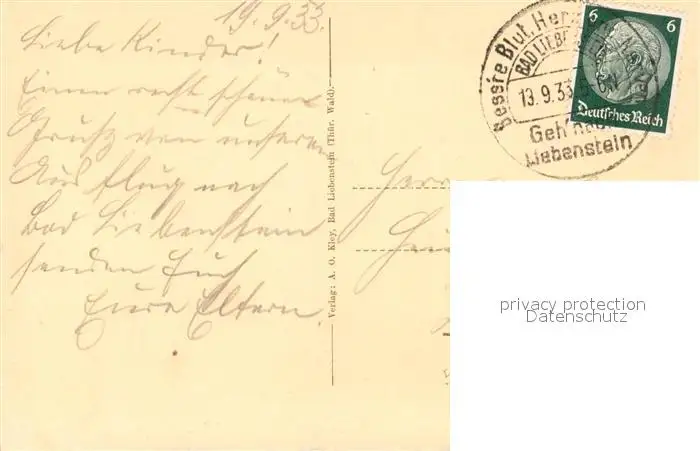 19.9.33
Liebe Kinder!
Einen recht schönen
Gruß von unserem
Ausflug nach
Bad Liebenstein
senden Euch
Eure Eltern.
Verlag: A. O. Kley, Bad Liebenstein (Thür. Wald).
Bessre Blut, Herz
BAD LIEBENSTEIN
13.9.33
Geh nach
Liebenstein
6 6
Deutsches Reich
Herrn
privacy protection
Datenschutz